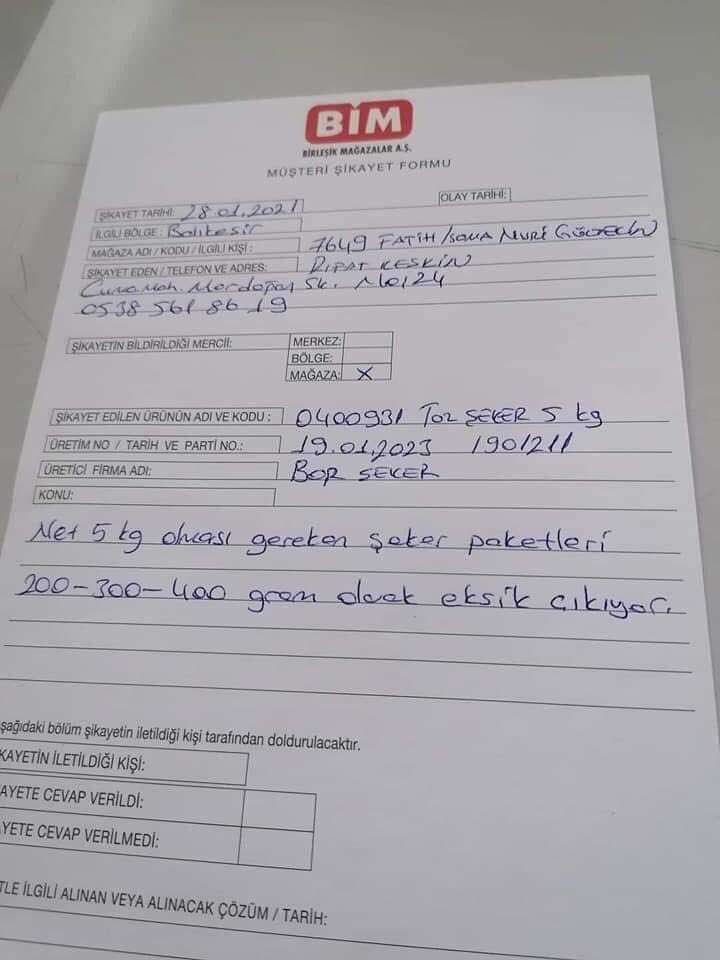 BİM
BİRLEŞİK MAĞAZALAR A.Ş.
MÜŞTERİ ŞİKAYET FORMU
ŞİKAYET TARİHİ: 28.01.2021 OLAY TARİHİ:
İLGİLİ BÖLGE: Balıkesir
MAĞAZA ADI / KODU / İLGİLİ KİŞİ: 7649 FATİH/SOMA NURİ
ŞİKAYET EDEN / TELEFON VE ADRES: RIFAT KESKİN
Mah. Sk. No:24
0538 561 86 19
ŞİKAYETİN BİLDİRİLDİĞİ MERCİİ: MERKEZ:
BÖLGE:
MAĞAZA: X
ŞİKAYET EDİLEN ÜRÜNÜN ADI VE KODU: 0400931 TOZ ŞEKER 5 kg
ÜRETİM NO / TARİH VE PARTİ NO.: 19.01.2023 1901211
ÜRETİCİ FİRMA ADI: BOR ŞEKER
KONU:
Net 5 kg olması gereken şeker paketleri
200-300-400 gram olarak eksik çıkıyor.
şağıdaki bölüm şikayetin iletildiği kişi tarafından doldurulacaktır.
KAYETİN İLETİLDİĞİ KİŞİ:
AYETE CEVAP VERİLDİ:
AYETE CEVAP VERİLMEDİ:
TLE İLGİLİ ALINAN VEYA ALINACAK ÇÖZÜM / TARİH: